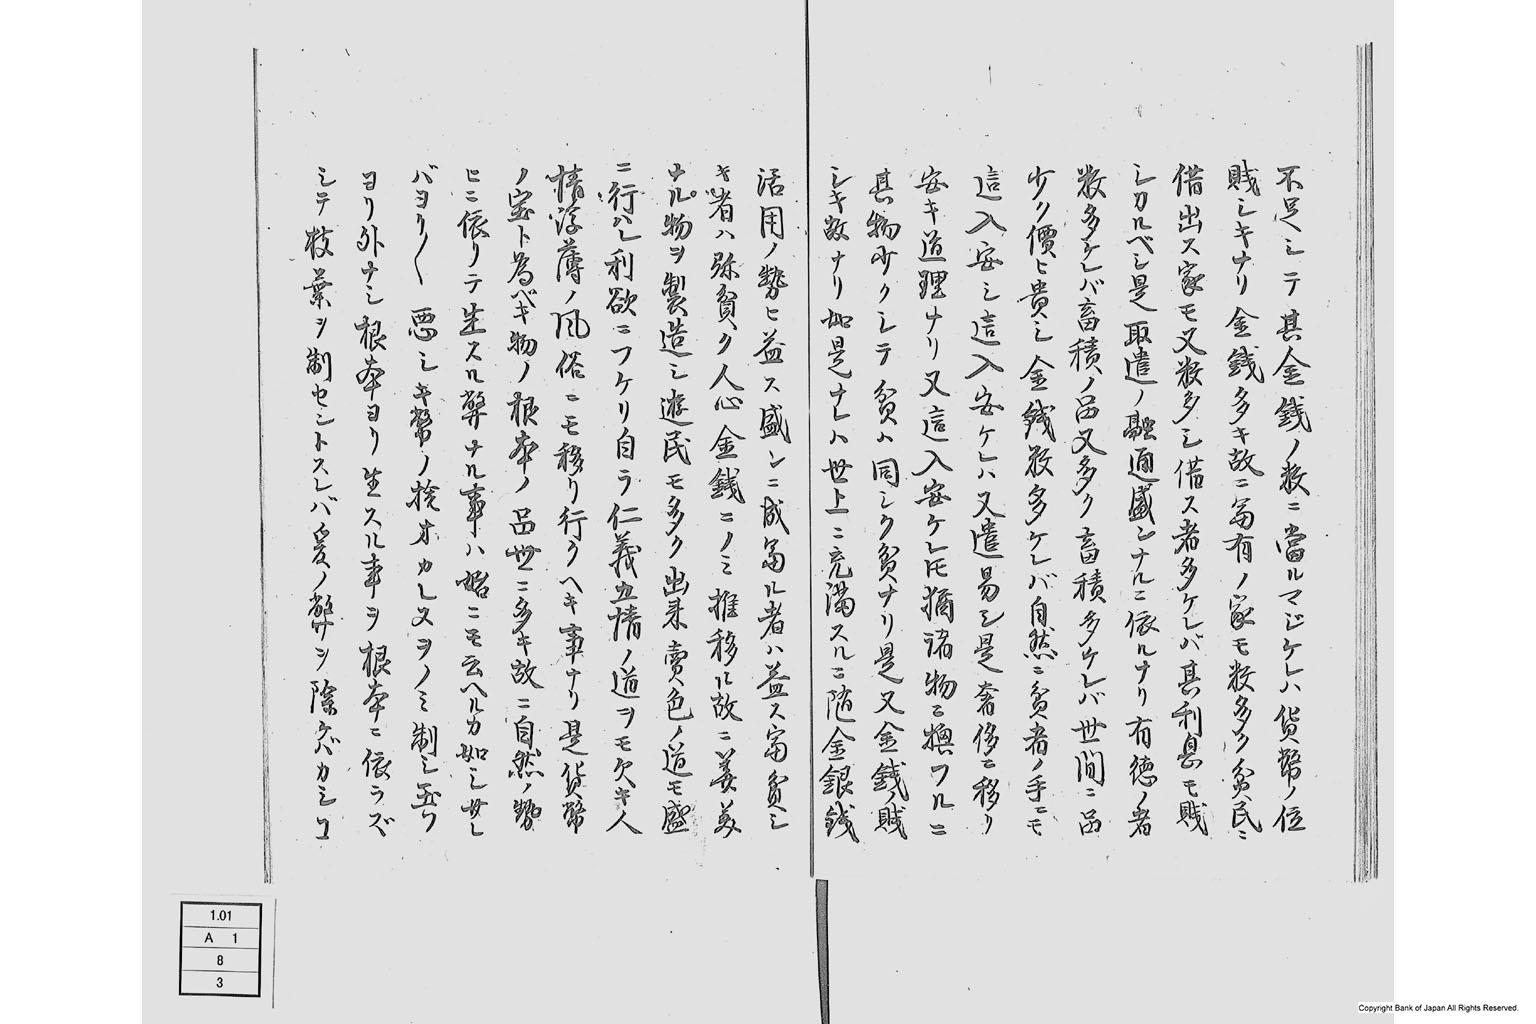 不足シテ其金銭ノ数ニ當ルマジケレハ貨幣ノ位
賎シキナリ金銭多キ故ニ富有ノ家モ数多ク貧民ニ
借出ス家モ又数多シ借ス者多ケレバ其利息モ賎
シカルベシ是取遣ノ融通盛ンナルニ依ルナリ有徳ノ者
数多ケレバ畜積ノ品又多ク畜積多ケレバ世間ニ品
少ク價ヒ貴シ金銭数多ケレバ自然ニ貧者ノ手ニモ
這入安シ這入安ケレハ又遣易シ是奢侈ニ移リ
安キ道理ナリ又這入安ケレ𪜈諸物ニ換フルニ
其物少クシテ貧ハ同シク貧ナリ是又金銭ノ賎
シキ故ナリ如是ナレハ世上ニ充満スルニ随金銀銭
活用ノ勢ヒ益ス盛ンニ成富ル者ハ益ス富貧シ
キ者ハ弥貧ク人心金銭ニノミ推移ル故ニ美
ナル物ヲ製造シ遊民モ多ク出来賣色ノ道モ盛
ニ行ハレ利欲ニフケリ自ラ仁義五情ノ道ヲモ欠キ人
情浮薄ノ風俗ニモ移リ行クヘキ事ナリ是貨幣
ノ宝ト為ベキ物ノ根本ノ品世ニ多キ故ニ自然ノ勢
ヒニ依リテ生スル弊ナル事ハ始ニモ云ヘルカ如シ
バヨリ〱悪シキ幣ノ ノミ制シ玉フ
ヨリ外ナシ根本ヨリ生スル事ヲ根本ニ依ラズ
シテ枝葉ヲ制セントスレバ爰ノ弊ヲ除ケバカシコ
1.01
A 1
8
3
Copyright Bank of Japan All Rights Reserved.